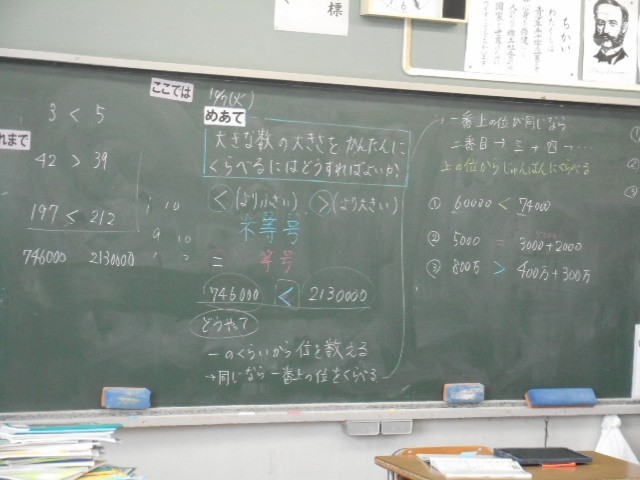 標
ちかい
わたくしは
ここでは
めあて
大きな数の大きさをかんたんに
くらべるにはどうすればよいか。
れまで
3 < 5
42 > 39
197 ≤ 212
746000 2130000
< (より小さい) > (より大きい)
不等号
= 等号
746000 < 2130000
どうやって
一のくらいから位を数える
→同じなら一番上の位をくらべる
一番上の位が同じなら
二番目→三→四→…
上の位からじゅんばんにくらべる
① 60000 < 74000
② 5000 = 3000+2000
③ 800万 > 400万+300万